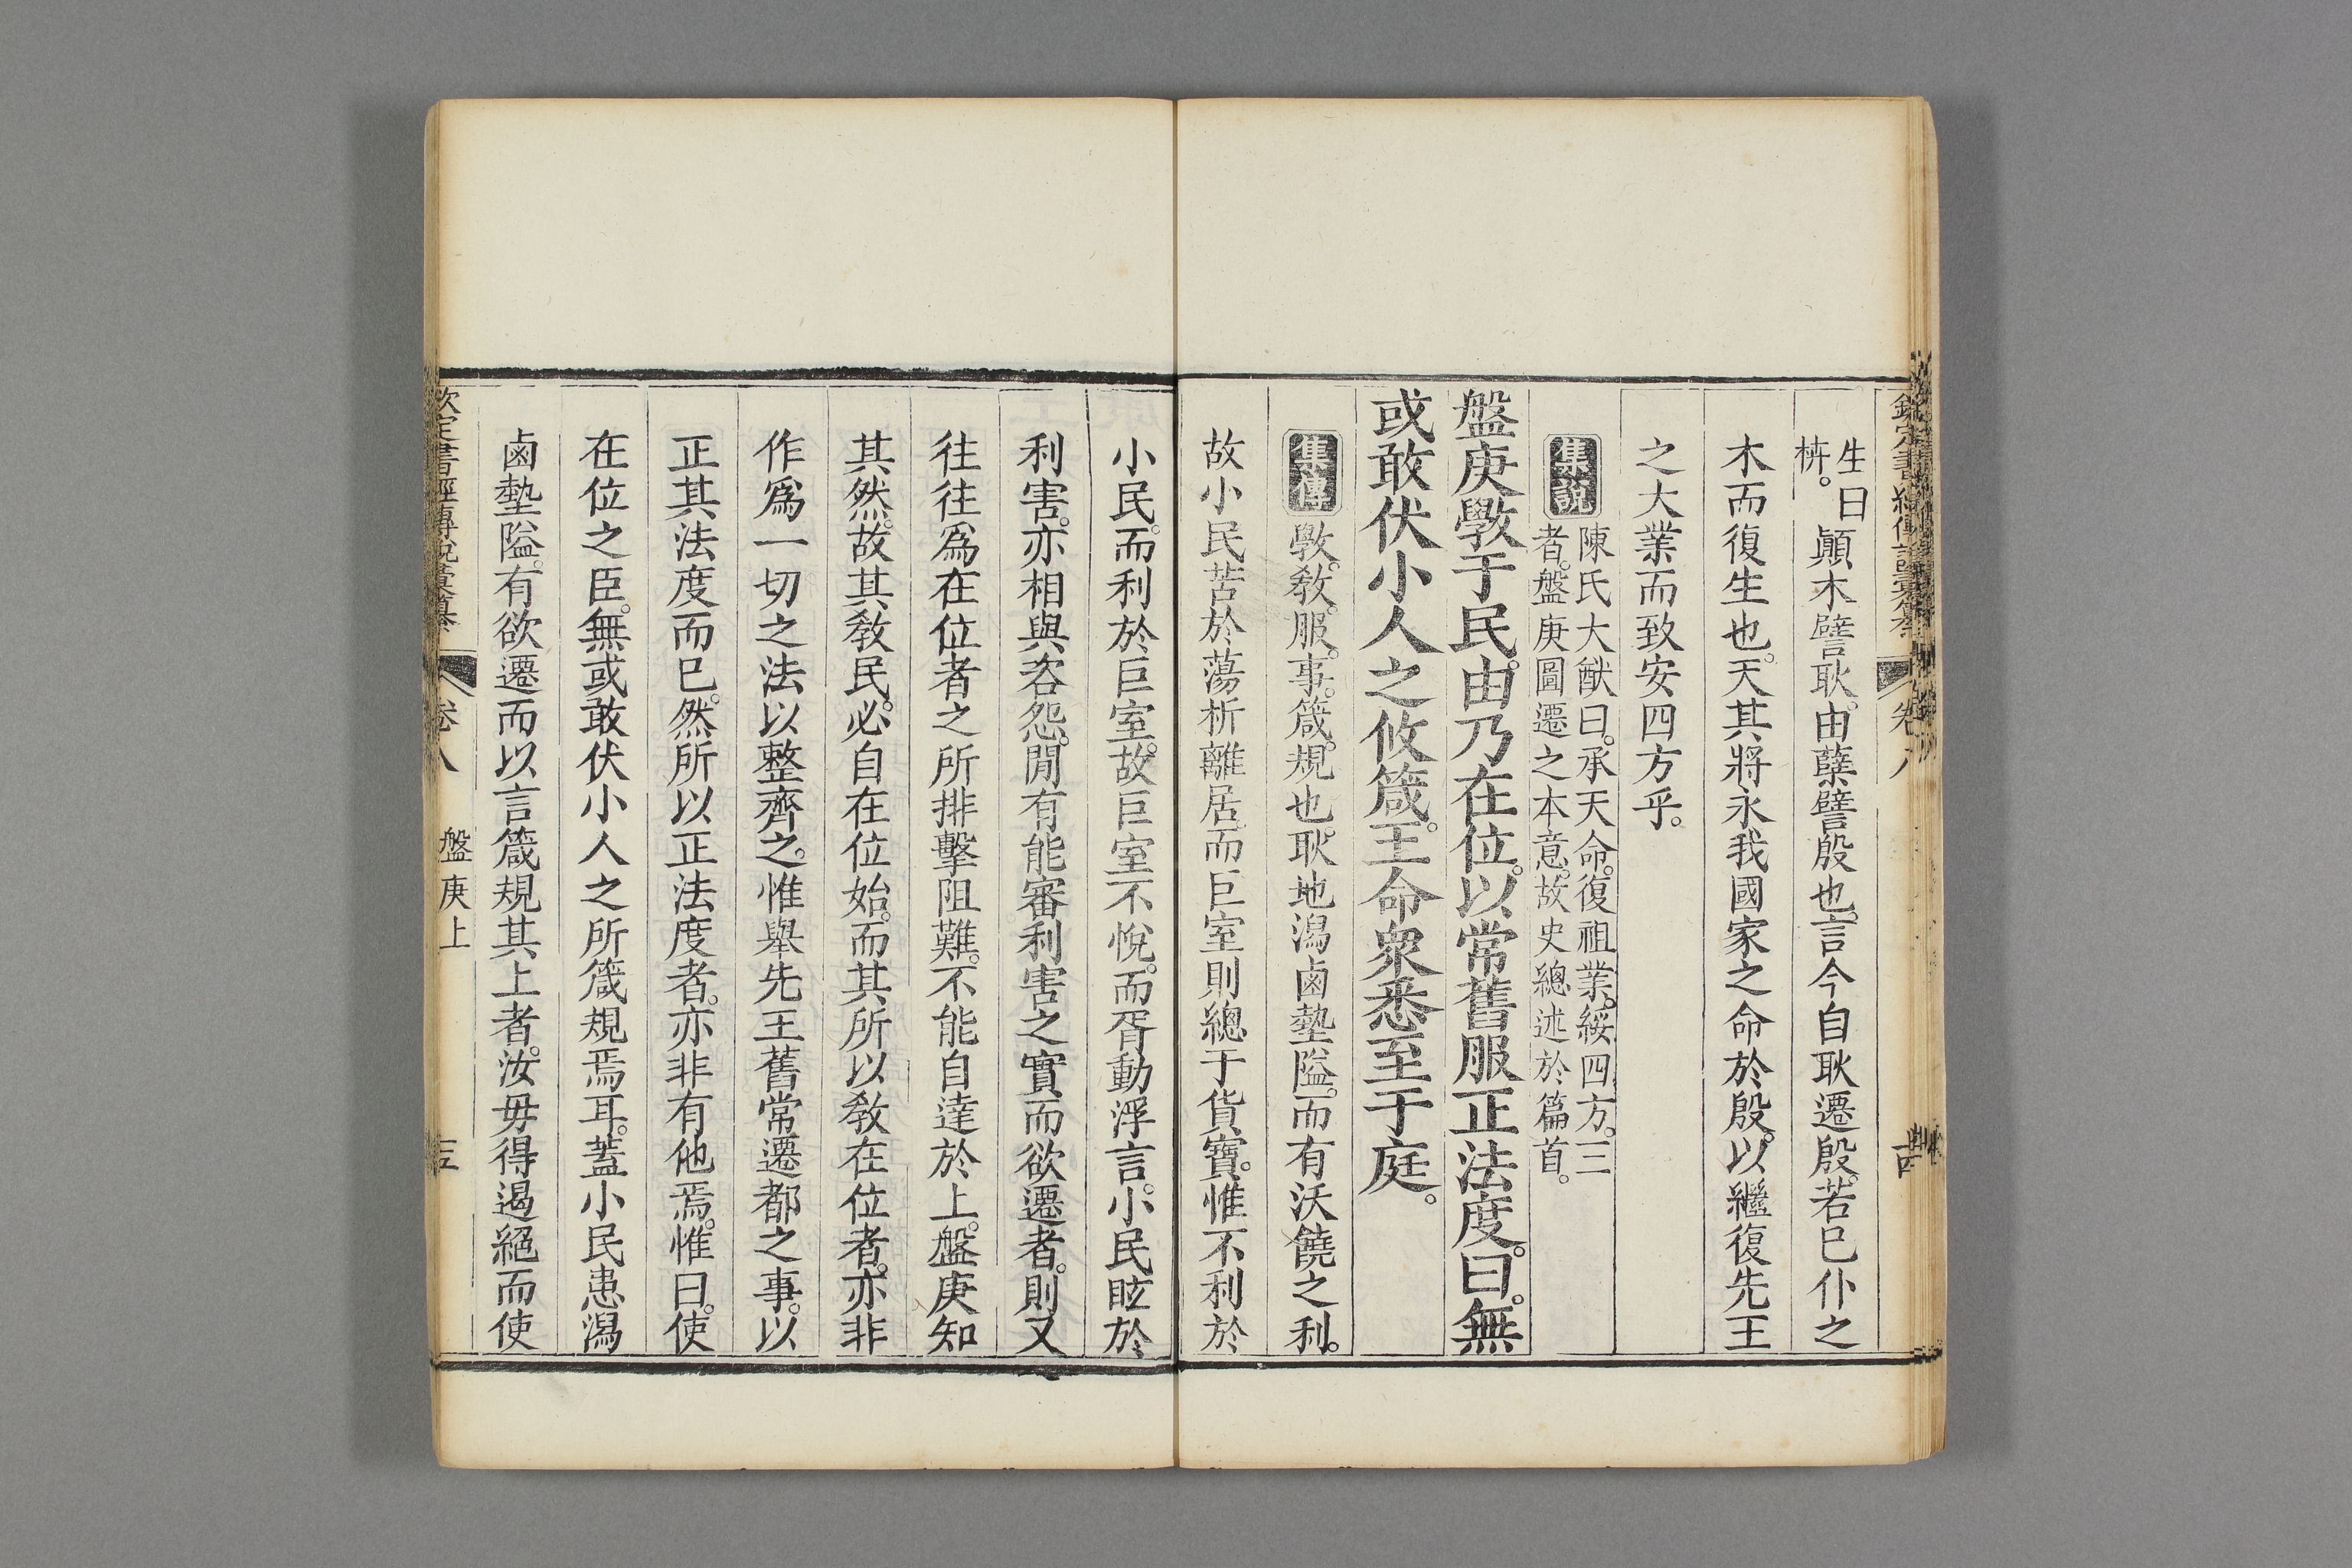 生曰
枿。
顚木譬耿。由蘖譬殷也。言今自耿遷殷。若已仆之
木而復生也。天其將永我國家之命於殷。以繼復先王
之大業而致安四方乎。
集說
陳氏大猷曰。承天命。復祖業。綏四方。三
者。盤庚圖遷之本意。故史總述於篇首。
盤庚斆于民。由乃在位。以常舊服正法度。曰。無
或敢伏小人之攸箴。王命衆悉至于庭。
集傳
斆。敎。服。事。箴。規也。耿地潟鹵墊隘。而有沃饒之利。
故小民苦於蕩析離居。而巨室則總于貨寶。惟不利於
小民。而利於巨室。故巨室不悅。而胥動浮言。小民眩於
利害。亦相與咨怨。閒有能審利害之實而欲遷者。則又
往往爲在位者之所排擊阻難。不能自達於上。盤庚知
其然。故其敎民。必自在位始。而其所以敎在位者。亦非
作爲一切之法以整齊之。惟舉先王舊常遷都之事。以
正其法度而已。然所以正法度者。亦非有他焉。惟曰。使
在位之臣。無或敢伏小人之所箴規焉耳。蓋小民患潟
鹵墊隘。有欲遷而以言箴規其上者。汝毋得遏絕而使
欽定書經傳說彙纂
卷八
盤庚上